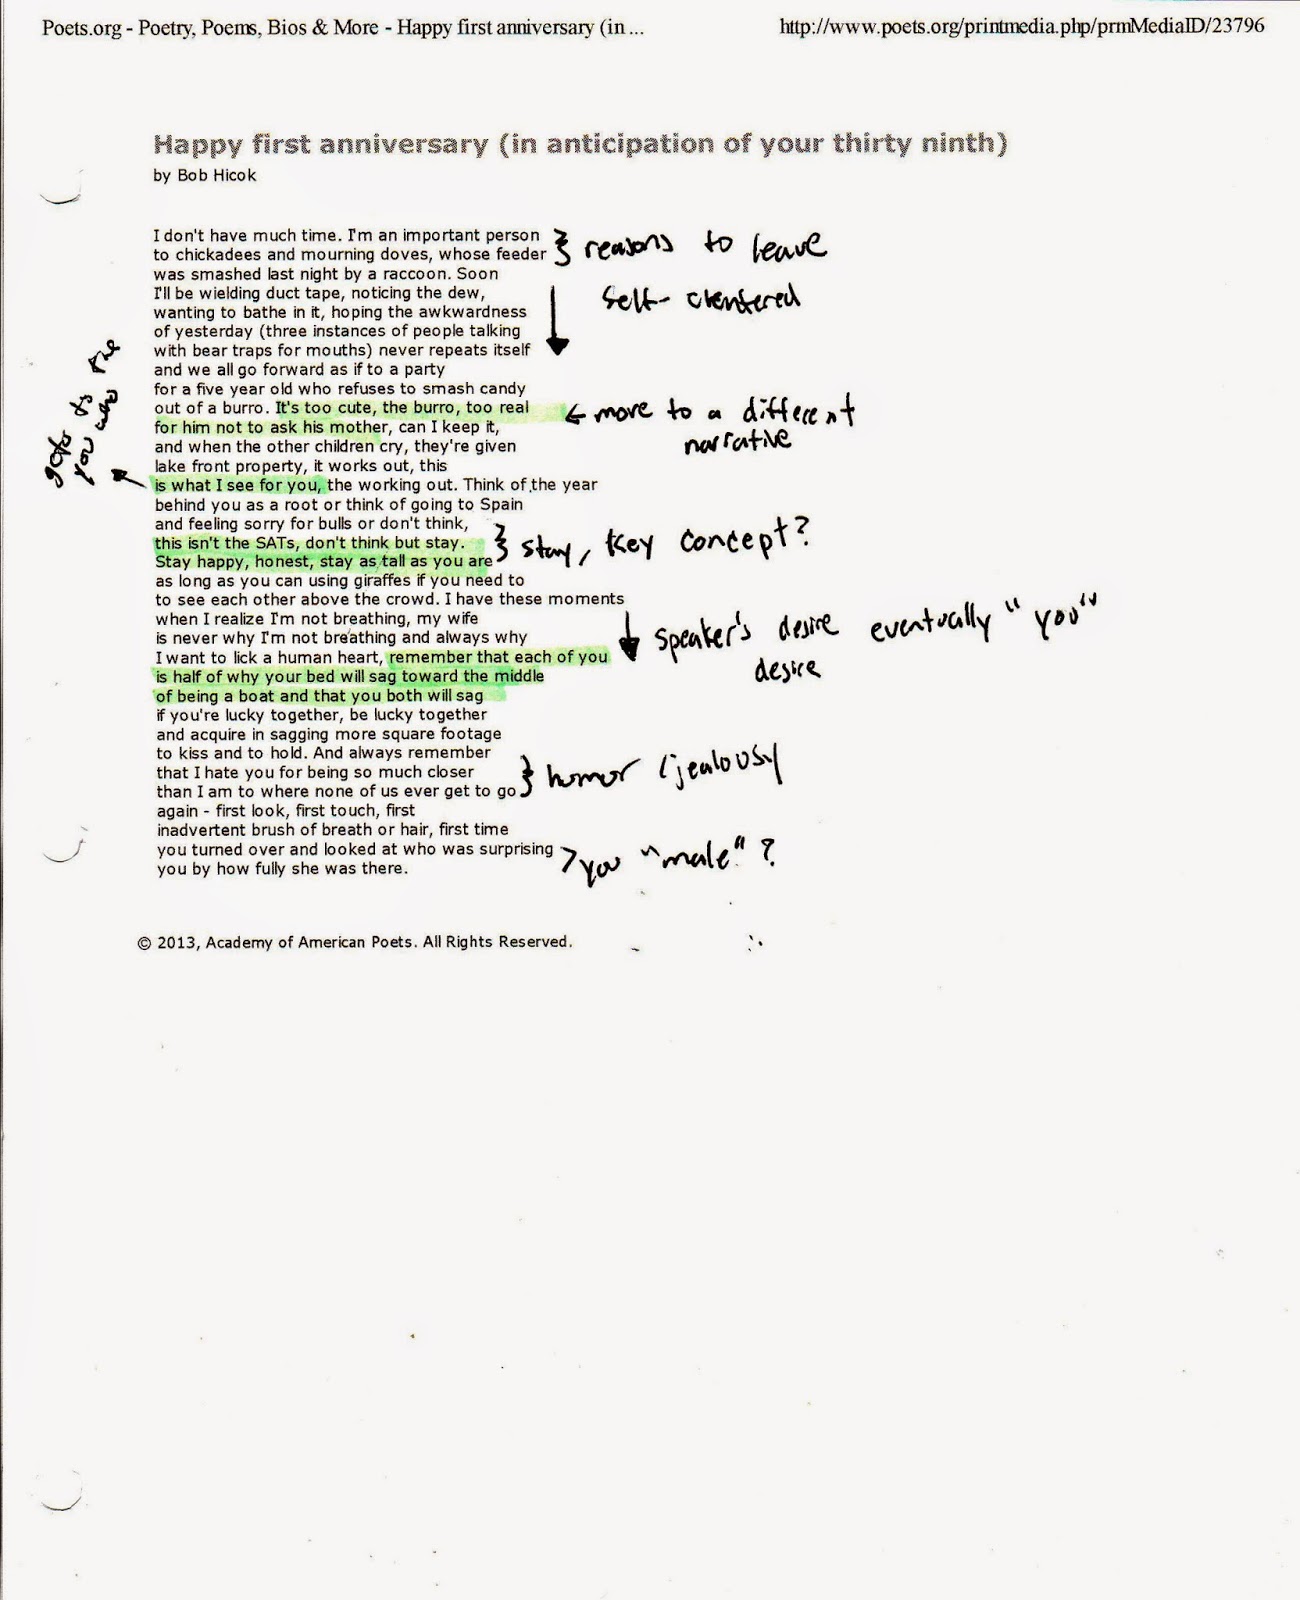 Poets.org - Poetry, Poems, Bios & More - Happy first anniversary (in ... http://www.poets.org/printmedia.php/prmMediaID/23796
Happy first anniversary (in anticipation of your thirty ninth)
by Bob Hicok
I don't have much time. I'm an important person
to chickadees and mourning doves, whose feeder
reasons to leave
was smashed last night by a raccoon. Soon
I'll be wielding duct tape, noticing the dew,
self-centered
wanting to bathe in it, hoping the awkwardness
of yesterday (three instances of people talking
with bear traps for mouths) never repeats itself
and we all go forward as if to a party
for a five year old who refuses to smash candy
out of a burro. It's too cute, the burro, too real
move to a different
narrative
for him not to ask his mother, can I keep it,
and when the other children cry, they're given
lake front property, it works out, this
to the
you
is what I see for you, the working out. Think of the year
behind you as a root or think of going to Spain
and feeling sorry for bulls or don't think,
this isn't the SATs, don't think but stay.
stay, key concept?
Stay happy, honest, stay as tall as you are
as long as you can using giraffes if you need to
to see each other above the crowd. I have these moments
when I realize I'm not breathing, my wife
is never why I'm not breathing and always why
speaker's desire eventually "you"
desire
I want to lick a human heart, remember that each of you
is half of why your bed will sag toward the middle
of being a boat and that you both will sag
if you're lucky together, be lucky together
and acquire in sagging more square footage
to kiss and to hold. And always remember
that I hate you for being so much closer
humor /jealousy
than I am to where none of us ever get to go
again - first look, first touch, first
inadvertent brush of breath or hair, first time
you turned over and looked at who was surprising
you "male"?
you by how fully she was there.
© 2013, Academy of American Poets. All Rights Reserved.